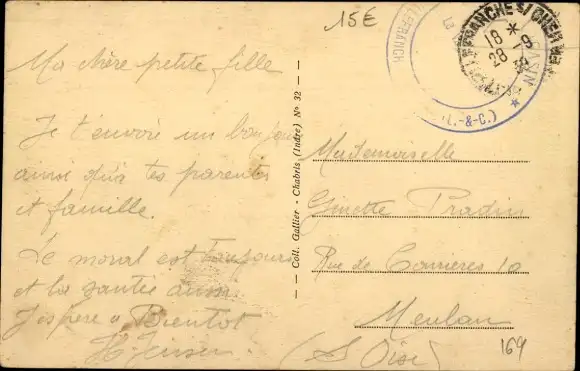 15E
Ma chère petite fille
Je t'envoie un bonjour
ainsi qu'a tes parents
et famille.
Le moral est toujours
et la santée aussi
J'espère a Bientot
— Coll. Gallier - Chabris (Indre) N° 32 —
VILLEFRANCH
(L.-&-C.)
FRANCHE S/ CHER
18 *
28 -9
Mademoiselle
Ginette Pradin
Rue de 10
Meulan
(S Oise)
169